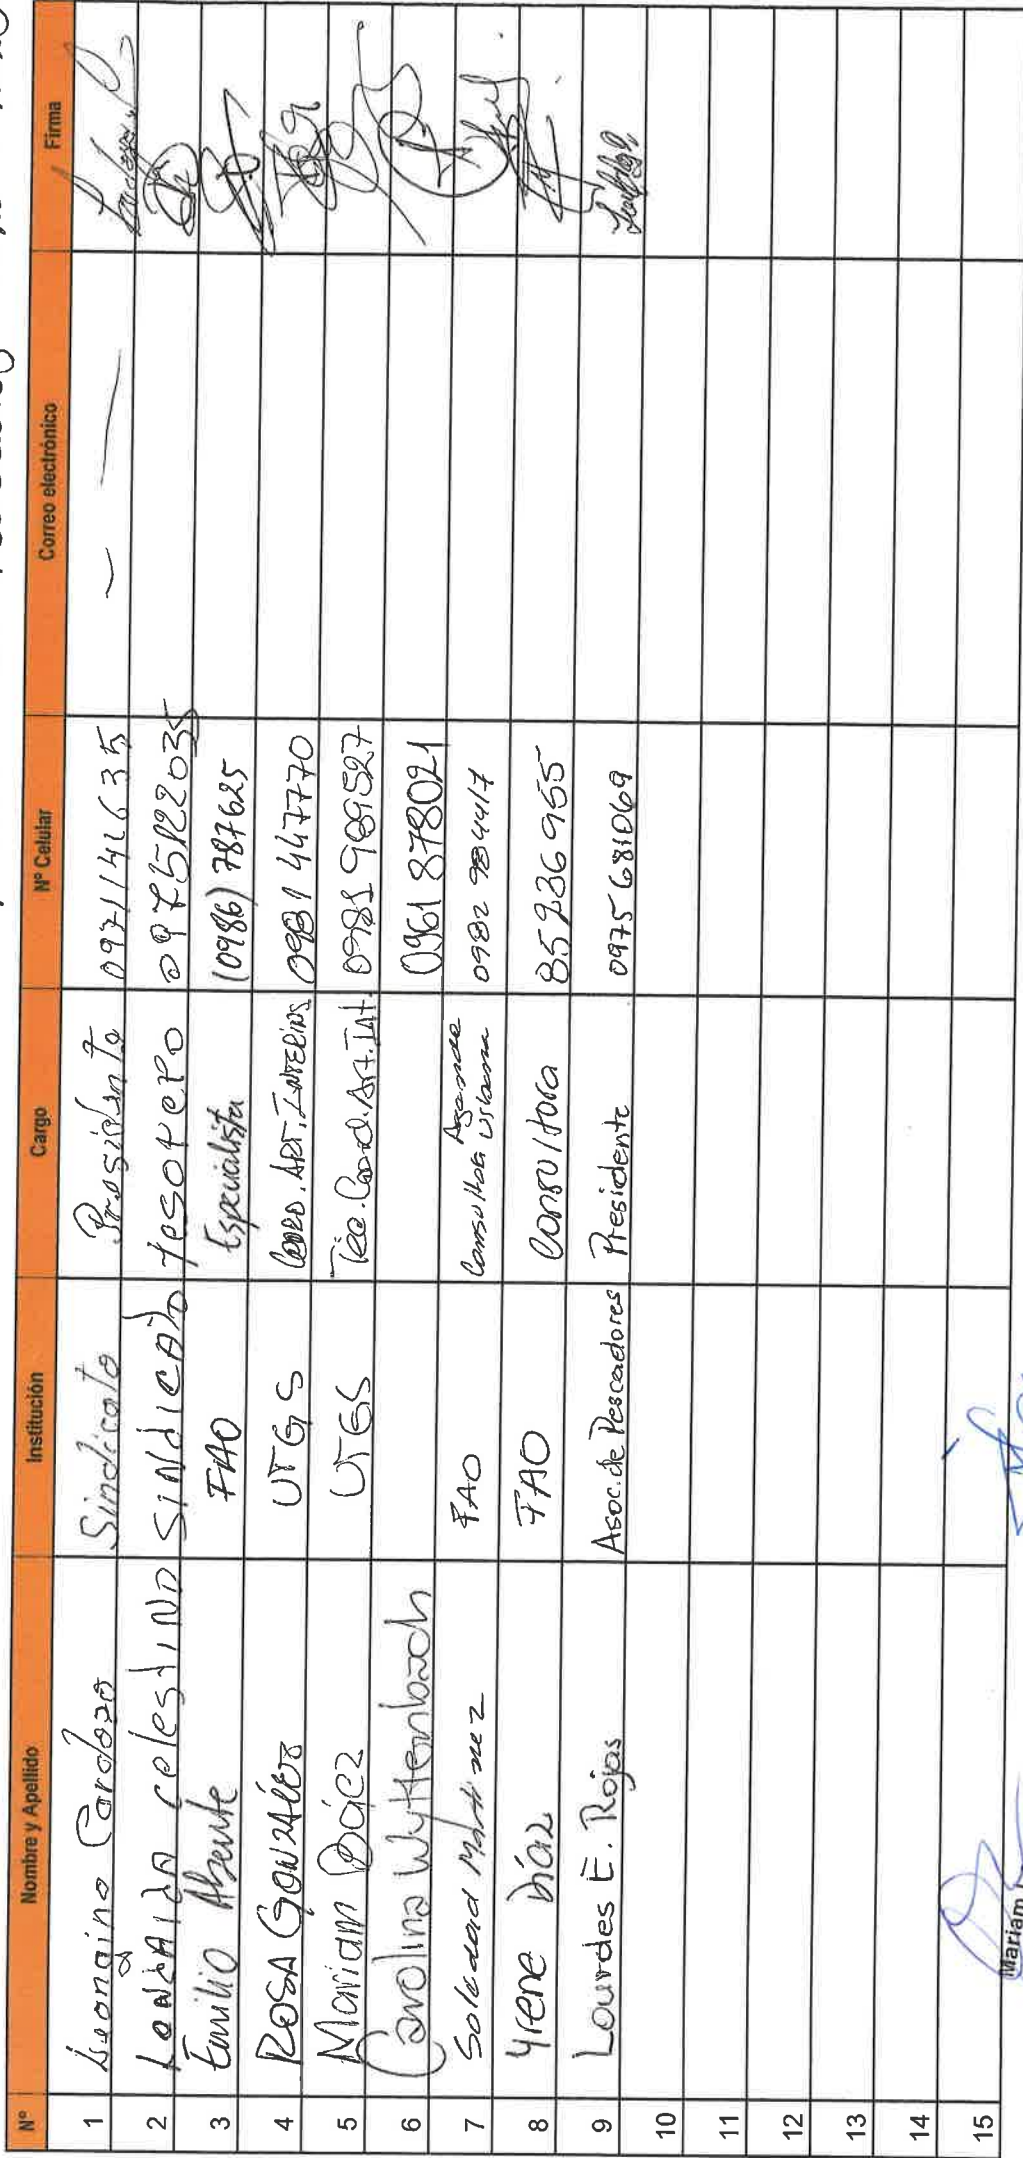 Nº Nombre y Apellido Institución Cargo Nº Celular Correo electrónico Firma
1 Cardozo Sindicato Presidente 0971142635 —
2 celestino SINDICADO tesorero 0975122035
3 Emilio FAO Especialista (0986) 787625
4 ROSA GONZÁLEZ UTGS Coord. ART. INTERINS 0981 447770
5 Mariam Báez UTGS Téc. Coord. Art. Int. 0981 989527
6 Carolina Wyttenbach 0961 878021
7 Soledad Martinez FAO Consultora Agenda Urbana 0982 984417
8 Yrene Díaz FAO Consultora 85236955
9 Lourdes E. Rojas Asoc. de Pescadores Presidente 0975 681069
10
11
12
13
14
15
Mariam